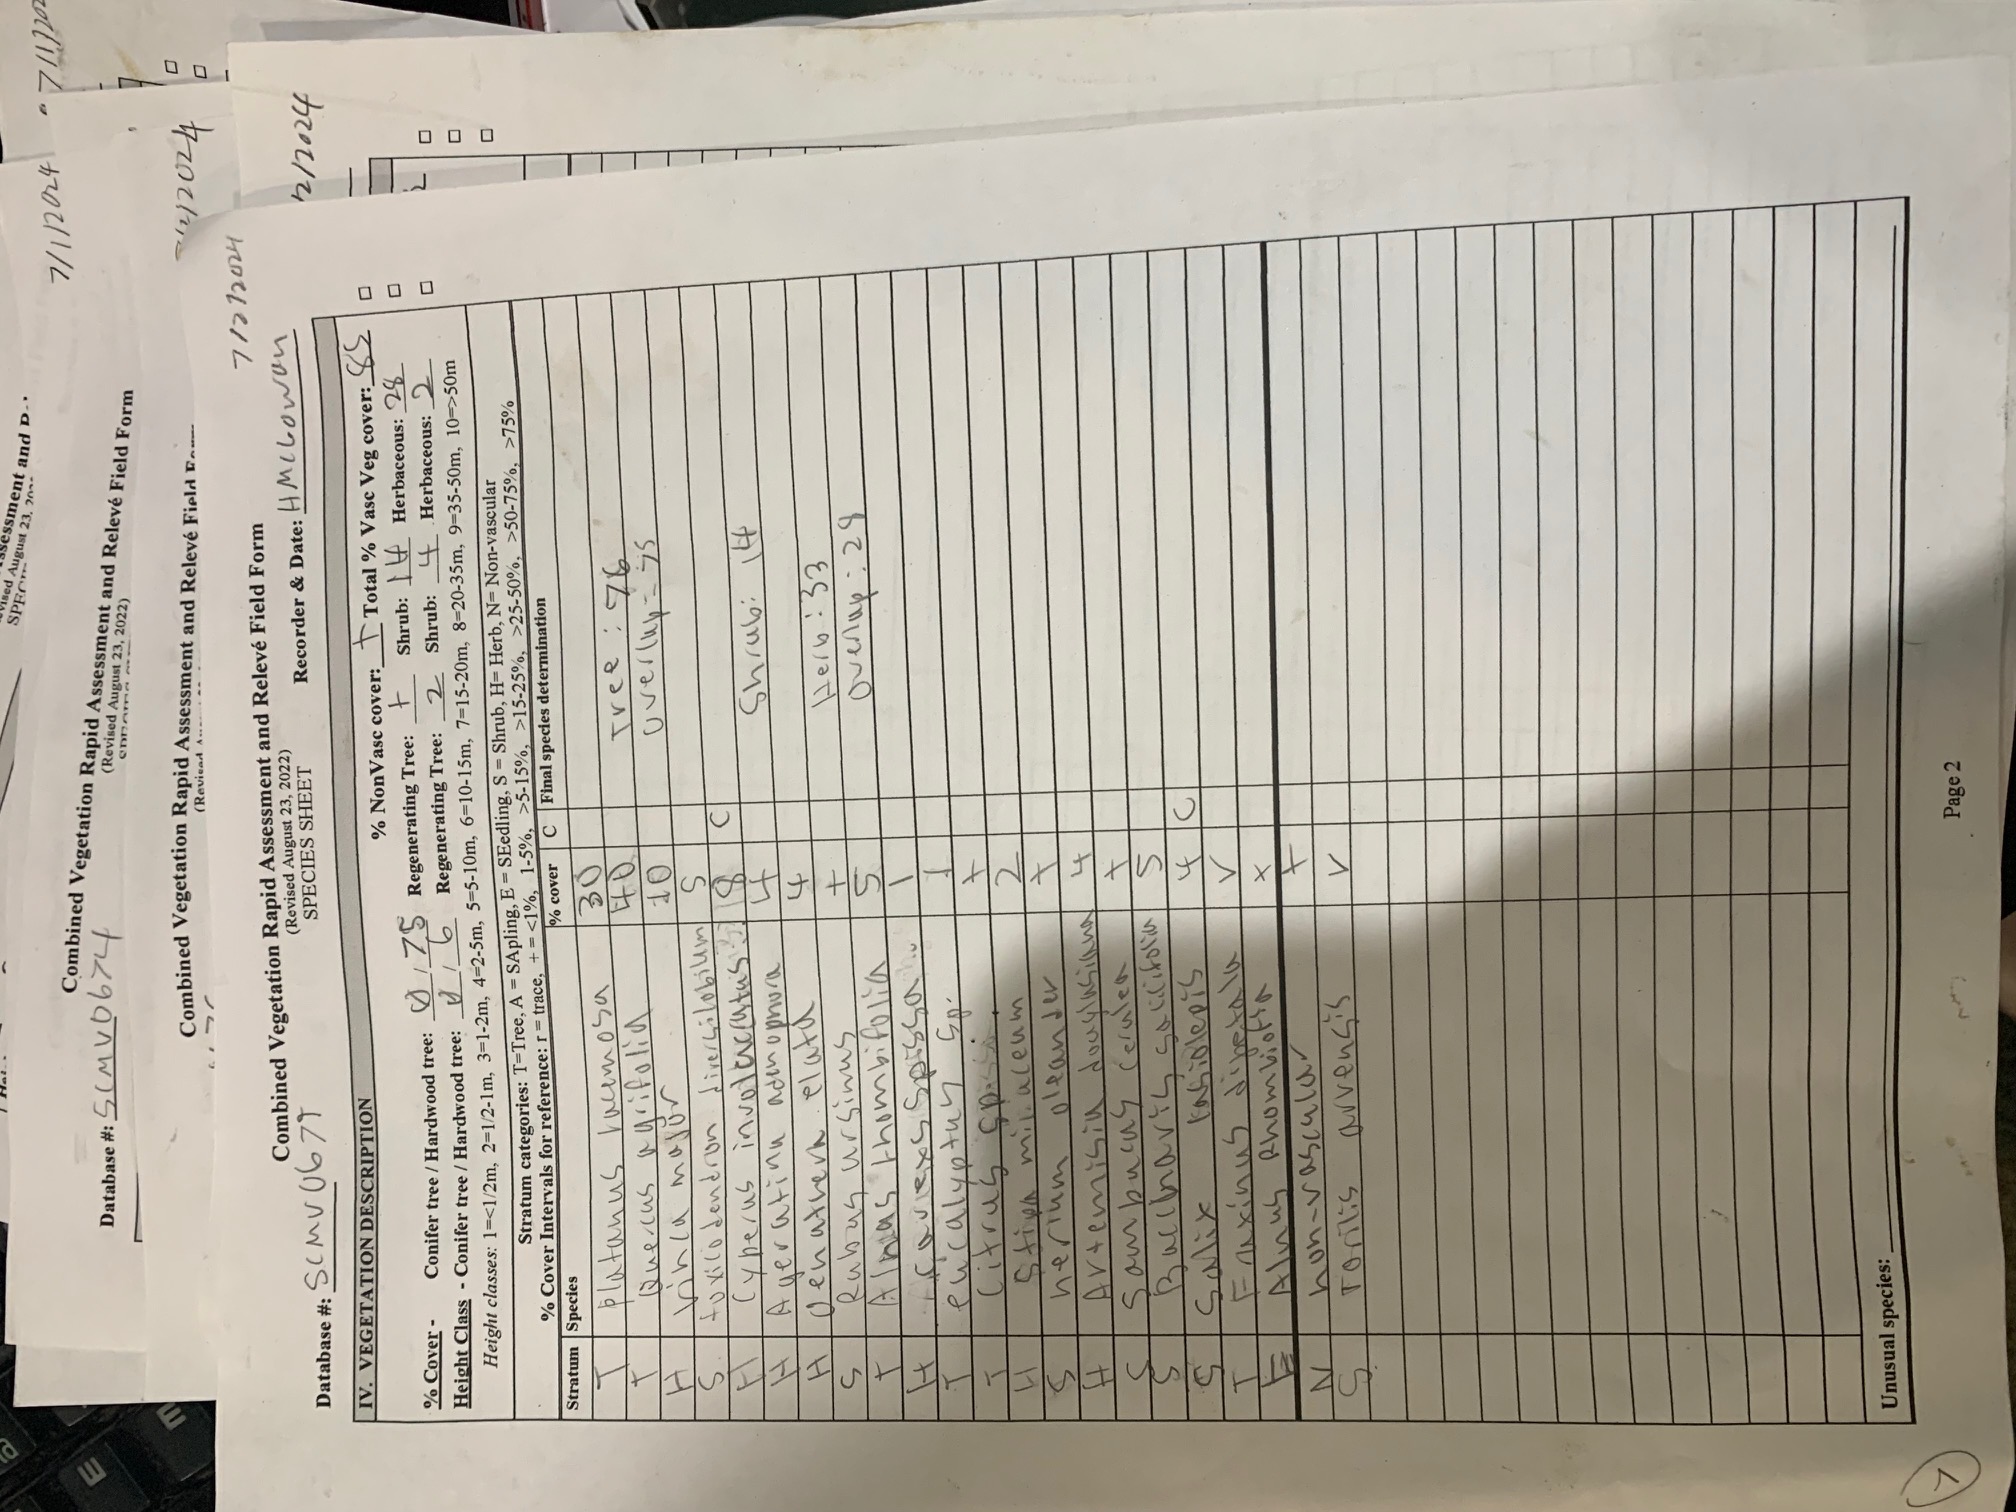 7/1/202
Assessment and
vised August 23, 202
7/1/2024
Combined Vegetation Rapid Assessment and Relevé Field Form
(Revised August 23, 2022)
Database #: SCMV0674
7/2/2024
Combined Vegetation Rapid Assessment and Relevé Field Form
(Revised
2/2024
7/2/2024
Combined Vegetation Rapid Assessment and Relevé Field Form
(Revised August 23, 2022)
SPECIES SHEET
Database #: SCMV0679 Recorder & Date: HMcGowan
IV. VEGETATION DESCRIPTION
% NonVasc cover: + Total % Vasc Veg cover: 85
% Cover - Conifer tree / Hardwood tree: 0 / 75 Regenerating Tree: + Shrub: 14 Herbaceous: 28
Height Class - Conifer tree / Hardwood tree: 0 / 6 Regenerating Tree: 2 Shrub: 4 Herbaceous: 2
Height classes: 1=<1/2m, 2=1/2-1m, 3=1-2m, 4=2-5m, 5=5-10m, 6=10-15m, 7=15-20m, 8=20-35m, 9=35-50m, 10=>50m
Stratum categories: T=Tree, A = SApling, E = SEedling, S = Shrub, H= Herb, N= Non-vascular
% Cover Intervals for reference: r = trace, + = <1%, 1-5%, >5-15%, >15-25%, >25-50%, >50-75%, >75%
Stratum Species % cover C Final species determination
T platanus racemosa 30
T Quercus agrifolia 40 Tree: 76
H vinca major 10 overlap = 75
S toxicodendron diversilobum 5
H Cyperus involucratus 18 C
H Ageratina adenophora 4 Shrub: 14
H Oenathera elata 4
S Rubus ursinus + Herb: 33
T Alnus rhombifolia 5 Overlap: 28
H 1
T eucalyptus sp. 1
T Citrus sp. +
H Stipa miliaceum 2
S nerium oleander +
H Artemisia douglasiana 4
S Sambucus cerulea +
S Baccharis salicifolia 5
S Salix lasiolepis 4 C
T Fraxinus dipetala r
E Alnus Rhombiofia +
N non-vascular +
S Torilis arvensis r
Unusual species:
Page 2